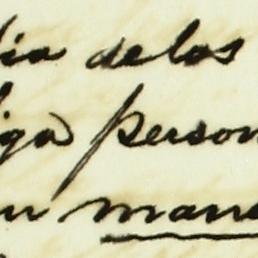 dia de los
iga person
n mana